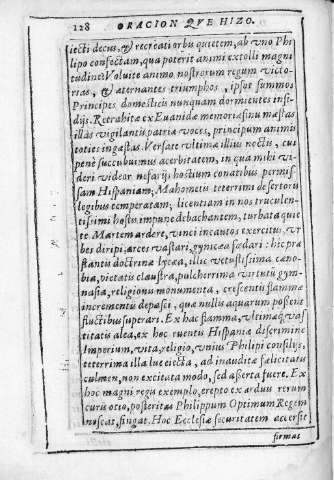 128 ORACION QVE HIZO.
iecti decus, & recreati orbis quietem, ab vno Phi
lipo confectam, qua poterit animi extolli magni
tudine? Voluite animo nostrorum regum victo-
rias, & aternantes triumphos, ipsos summos
Principes domesticis nunquam dormientes insi
dijs. Retrahite ex Euanidæ memoriæ sinu mæstas
illas vigilantis patriæ voces, principum animis
toties ingæstas. Versate vltimæ illius noctis, cui
penè succubuimus acerbitatem, in qua mihi vi
deri videor nefarijs hostium conatibus permis-
sam Hispaniam; Mahometis teterrimi desertoris
legibus temperatam, licentiam in nos truculen-
tissimi hostis impune debachantem, turbata quie
te Martem ardere, vinci incautos exercitus, vr
bes diripi, arces vastari, gynicea fœdari: hic præ
stantis doctrinæ lycæa, illic vetustissima cœno-
bia, pietatis claustra, pulcherrima virtutũ gym-
nasia, religionis monumenta, crescentis flammæ
incrementis depasci, quæ nullis aquarum possent
fluctibus superari. Ex hac flamma, vltimæq; vas
titatis alea, ex hoc ruentis Hispaniæ discrimine
Imperium, vita, religio, vnius Philipi consilijs,
teterrima illa lue eiecta, ad inaudita fælicitatis
culmen, non excitata modo, sed aserta fuere. Ex
hoc magni regis exemplo, erepto ex arduis rerum
curis otio, posteritas Philippum Optimum Regem
noscat, fingat. Hoc Ecclesiæ securitatem accersit
firmas